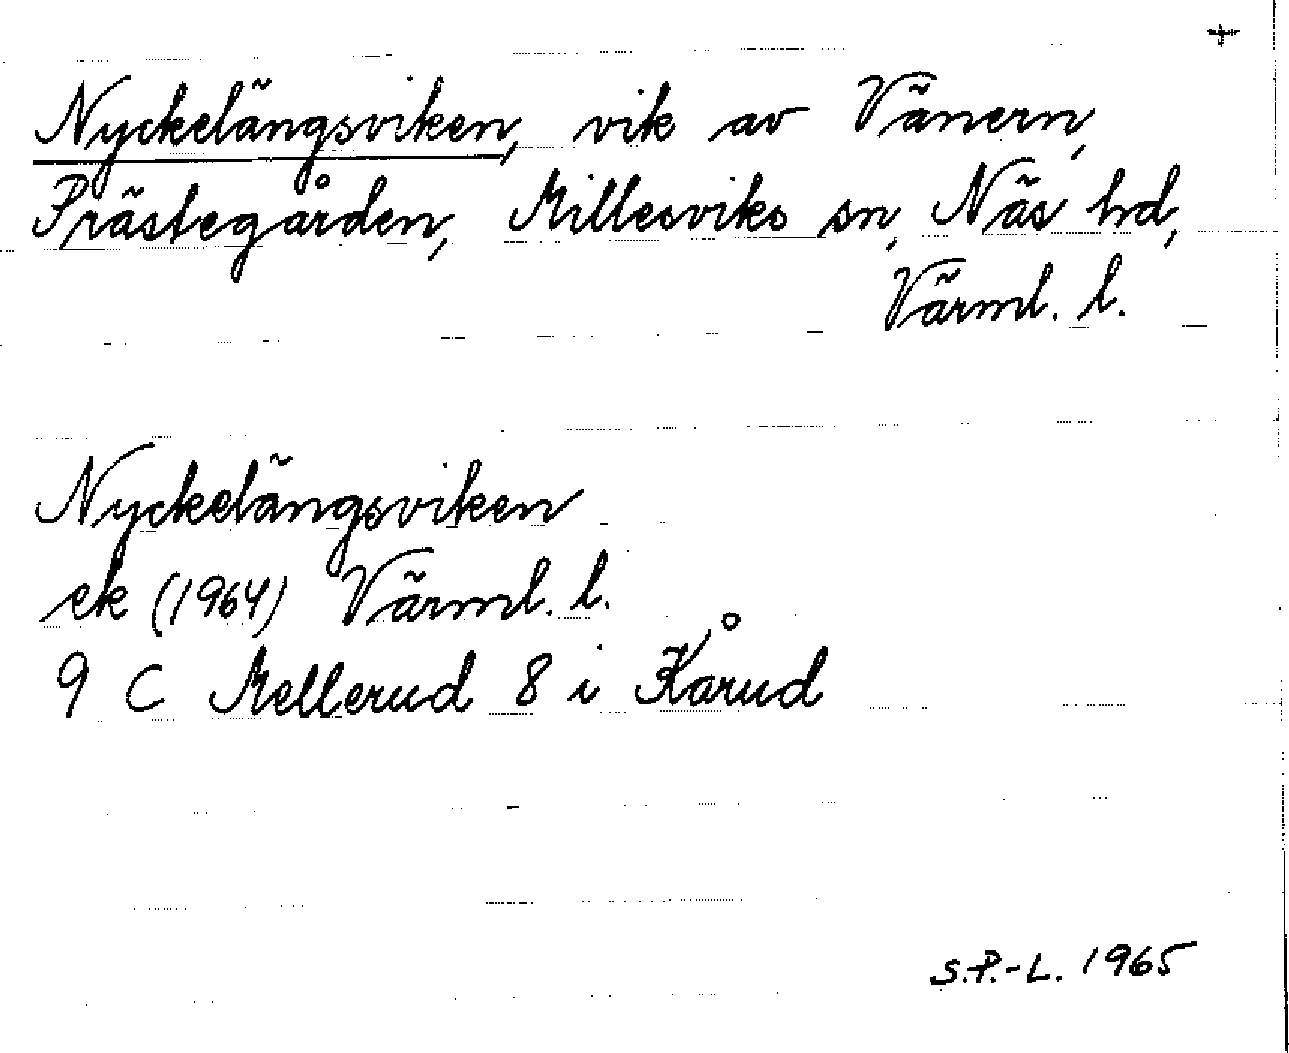 +
Nyckelängsviken, vik av Vänern,
Prästegården, Millesviks sn, Näs hd,
Värml. l.
Nyckelängsviken
ek (1964) Värml. l.
9 C Mellerud 8 i Kårud
S.P.-L. 1965